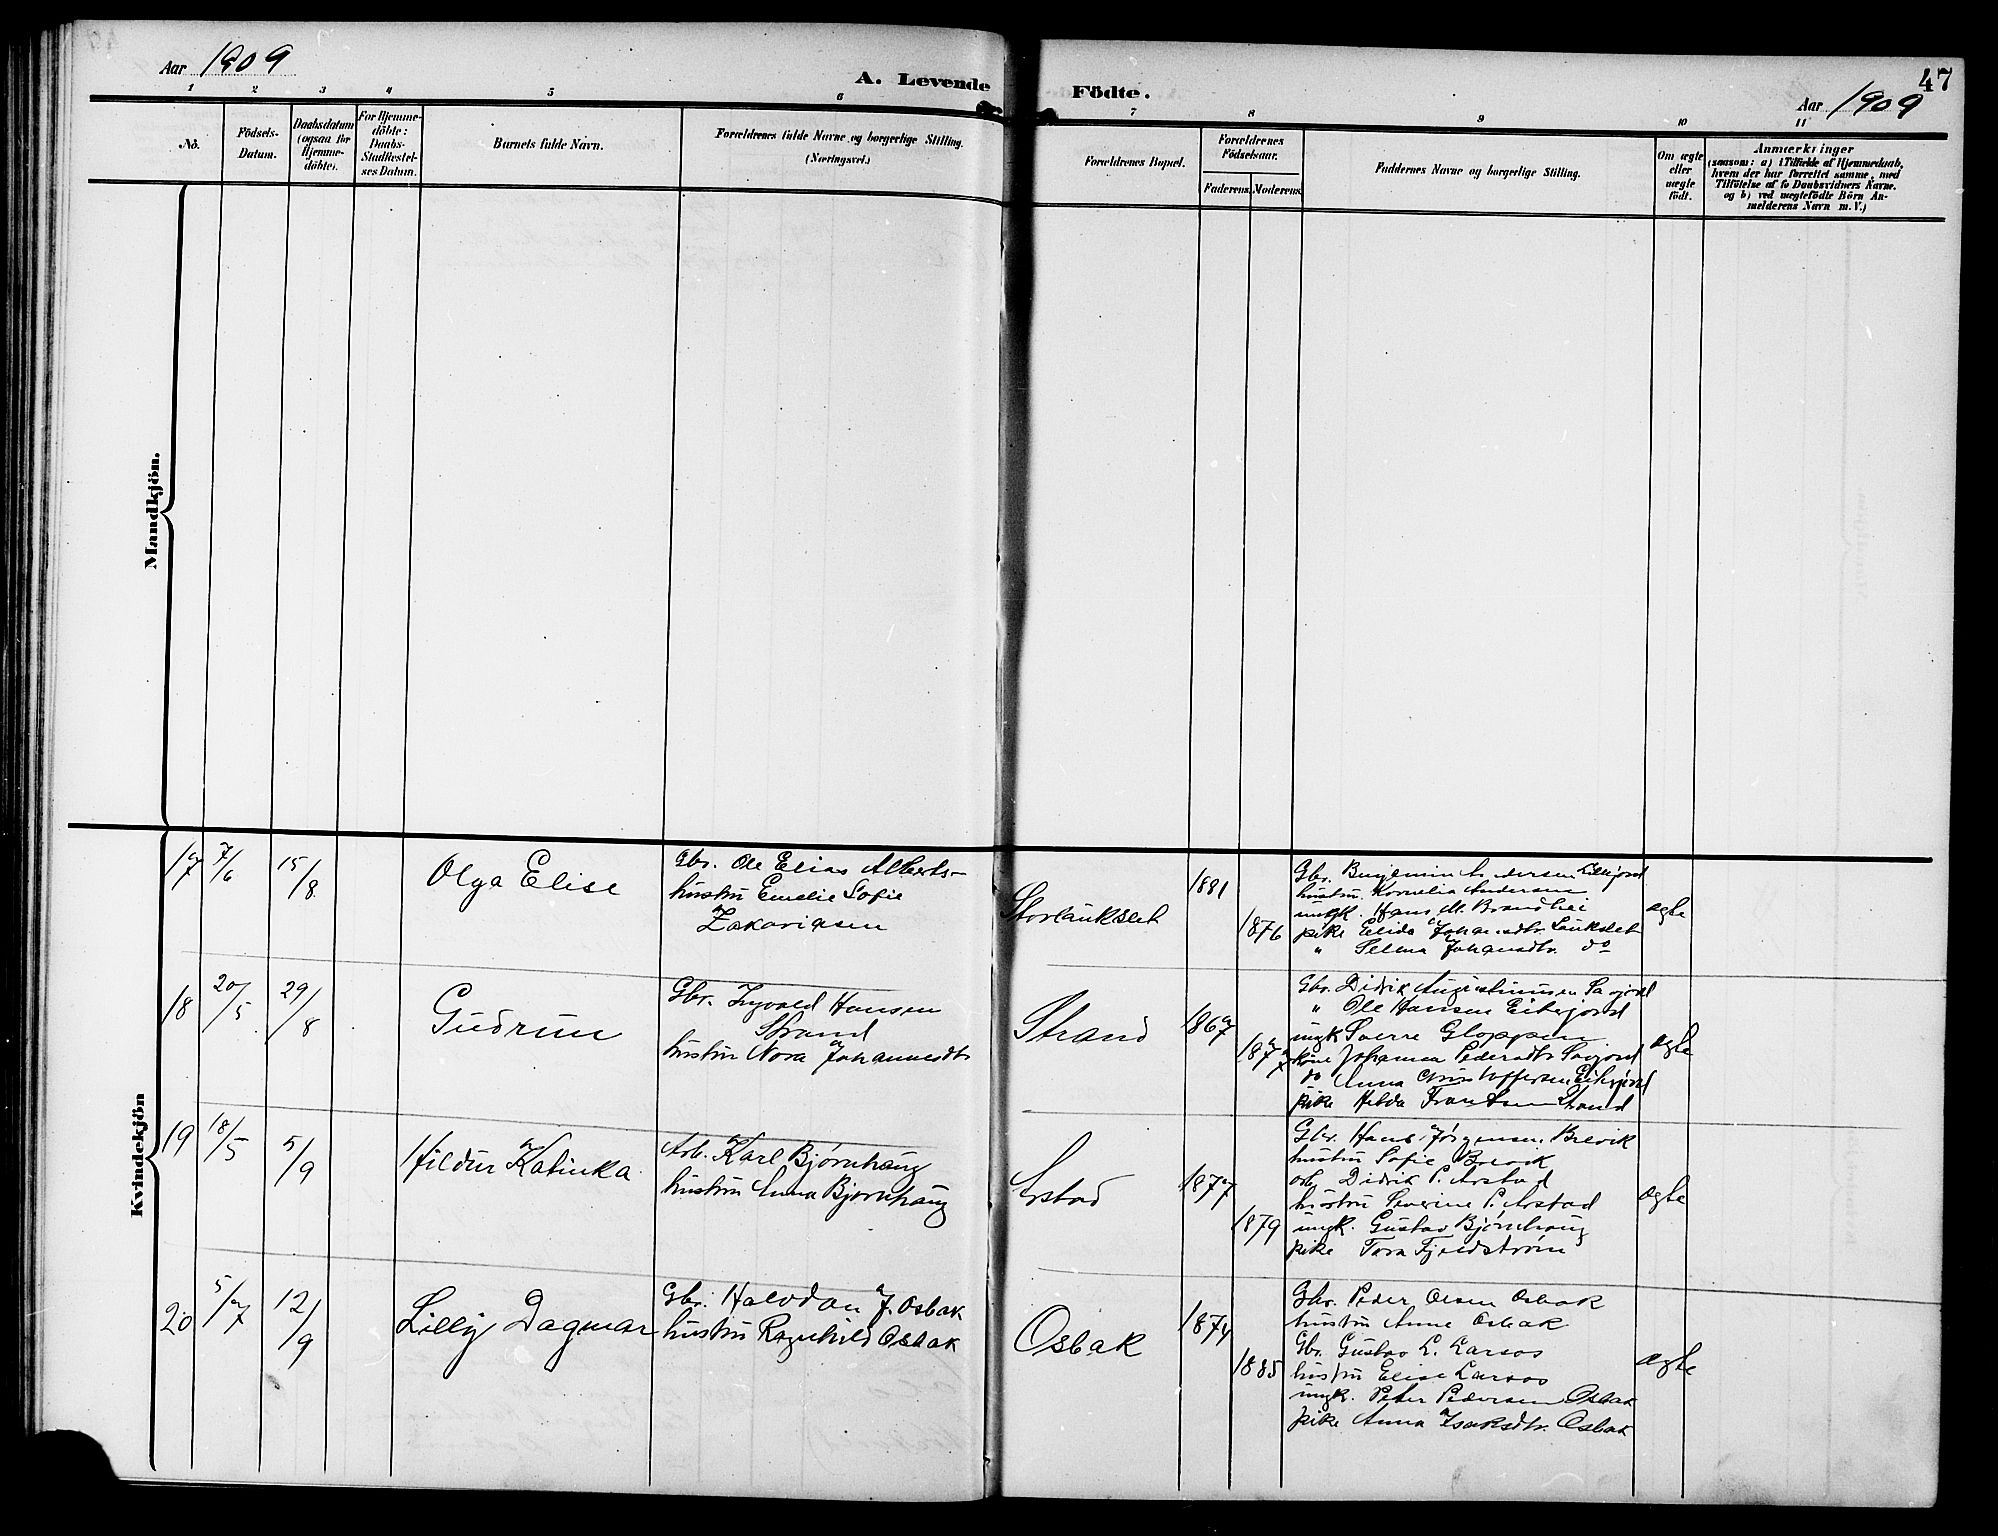 Aar 1909
A. Levende Födte.
47
Aar 1909
1 2 3 4 5 6 7 8 9 10 11
No.
Födsels-
Datum.
Daabsdatum
(ogsaa for
Hjemme-
döbte).
For Hjemme-
döbte:
Daabs-
Stadfæstel-
ses Datum.
Barnets fulde Navn.
Forældrenes fulde Navne og borgerlige Stilling.
(Næringsvei.)
Forældrenes Bopæl.
Forældrenes
Födselsaar.
Faderens. Moderens.
Faddernes Navne og borgerlige Stilling.
Om ægte
eller
uægte
födt.
Anmærkninger
(saasom: a) i Tilfælde af Hjemmedaab,
hvem der har forrettet samme, med
Tilföielse af to Daabsvidners Navne.
og b) ved uægtefödte Börn An-
melderens Navn m. V.)
Mandkjön.
Kvindekjön
17
7/6
15/8
Olga Elise
Gbr. Ole Elias Alberts-
hustru Emelie Sofie
Zakariasen
Storlaukslet
1881
1876
Gbr. Benjamin
hustru Kornelia Andersen
ungk. Hans M. Brandhei
pike Elida
" Selma Johansdtr. do
ægte
18
20/5
29/8
Gudrun
Gbr. Ingvald Hansen
Strand
hustru Nora Johannesdtr
Strand
1867
187
Gbr. Didrik Augustinussen
" Ole Hansen
ungk Sverre Gloppen
kone Johanna Pedersdtr
do Anna Christoffersen
pike Hilda Frantsen Strand
ægte
19
18/5
5/9
Hildur Katinka
Arb. Karl Bjørnhaug
hustru Anna Bjørnhaug
Arstad
1877
1879
Gbr. Hans Jørgensen Brevik
hustru Sofie Brevik
arb Didrik P. Arstad
hustru Severine P. Arstad
ungk. Gustav Bjørnhaug
pike Tora Fjeldstrøm
ægte
20
5/7
12/9
Lilly Dagmar
Gbr. Halvdan J. Osbak
hustru Ragnhild Osbak
Osbak
1874
1885
Gbr. Peder Olsen Osbak
hustru Anne Osbak
Gbr. Gustav L. Larsos
hustru Elise Larsos
ungk. Peter Pedersen Osbak
pike Anna Isaksdtr. Osbak
ægte